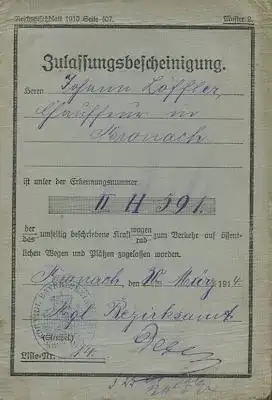 Reichsgesetzblatt 1910 Seite 607. Muster 2.
Zulassungsbescheinigung.
Herrn Johann Löffler,
Chauffeur in
Kronach
ist unter der Erkennungsnummer
II H 591.
der/das umseitig beschriebene Kraftwagen/rad zum Verkehr auf öffent-
lichen Wegen und Plätzen zugelassen worden.
Kronach, den 20. März 1914
Kgl. Bezirksamt
(Stempel)
Liste-Nr. 14.